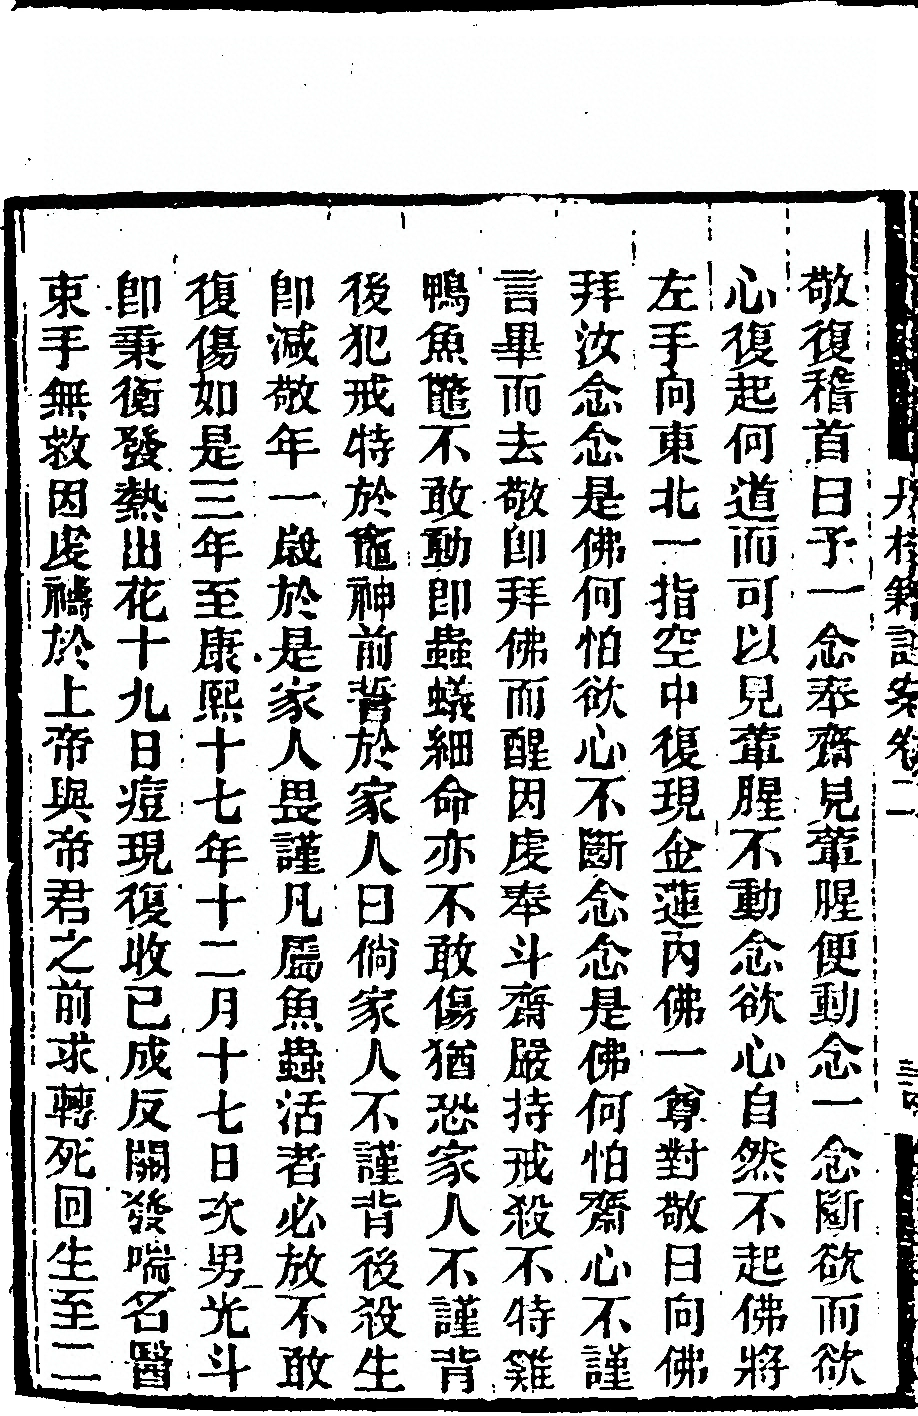 敬復稽首曰予一念奉齋見葷腥便動念一念斷欲而欲
心復起何道而可以見葷腥不動念欲心自然不起佛將
左手向東北一指空中復現金蓮內佛一尊對敬曰向佛
拜汝念念是佛何怕欲心不斷念念是佛何怕齋心不謹
言畢而去敬卽拜佛而醒因虔奉斗齋嚴持戒殺不特雞
鴨魚鼈不敢動卽蟲蟻細命亦不敢傷猶恐家人不謹背
後犯戒特於竈神前誓於家人曰倘家人不謹背後殺生
卽減敬年一歲於是家人畏謹凡爲魚蟲活者必放不敢
復傷如是三年至康熙十七年十二月十七日次男光斗
卽秉衡發熱出花十九日痘現復收已成反關發喘名醫
束手無救因虔禱於上帝與帝君之前求轉死回生至二
丹桂籍註案卷二
三四